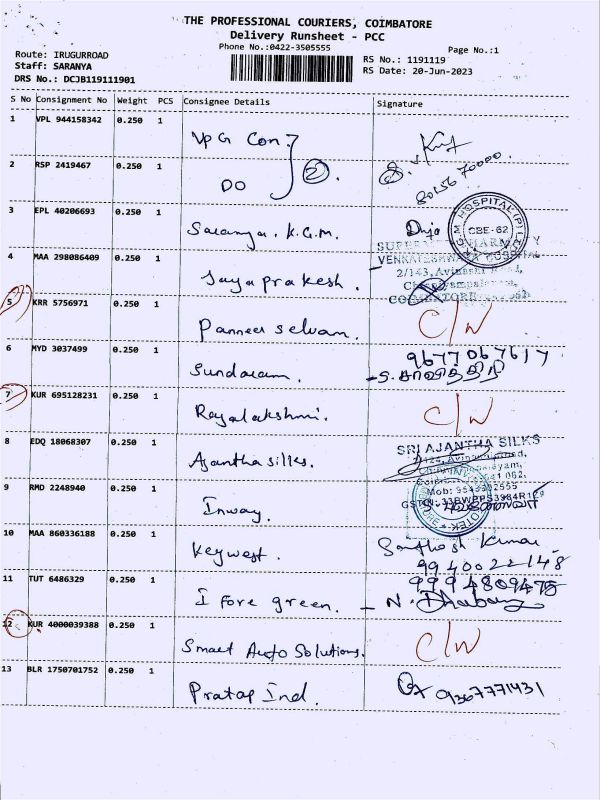 THE PROFESSIONAL COURIERS, COIMBATORE
Delivery Runsheet - PCC
Phone No.:0422-3505555
Page No.:1
Route: IRUGURROAD
Staff: SARANYA
DRS No.: DCJB119111901
RS No.: 1191119
RS Date: 20-Jun-2023
S No Consignment No Weight PCS Consignee Details Signature
1 VPL 944158342 0.250 1 VPG Con.
2 RSP 2419467 0.250 1 DO 2. 8056 70000.
3 EPL 40206693 0.250 1 Saranya. K.G.M. K.G.M HOSPITAL (P) LTD CBE-62
4 MAA 298086409 0.250 1 Jayaprakesh. VENKATESHWARA HOSPITAL
2/143, Avinashi Road,
COIMBATORE
5 KRR 5756971 0.250 1 Panneer selvam. C/W
6 MYD 3037499 0.250 1 Sundaram. 9677067617
S. சாவித்திரி
7 KUR 695128231 0.250 1 Rayalakshmi. C/W
8 EDQ 18068307 0.250 1 Ajantha silks. SRI AJANTHA SILKS
9 RMD 2248940 0.250 1 Inway.
10 MAA 860336188 0.250 1 Keywest. Santhosh Kumar
9940022148
11 TUT 6486329 0.250 1 I Fore green. 9994809475
12 KUR 4000039388 0.250 1 Smart Auto Solutions. C/W
13 BLR 1750701752 0.250 1 Pratap Ind. 9367771431